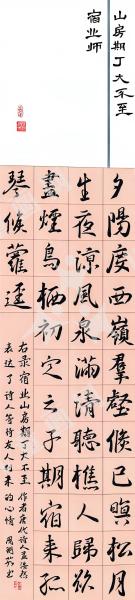 宿业师
山房期丁大不至
夕陽度西嶺羣壑倏已暝松月
生夜涼風泉滿清聽樵人歸欲
盡煙鳥栖初定之子期宿来孤
琴候蘿逕
右录宿业山房期丁大不至 作者唐代诗人孟浩然
表达了诗人等待友人到来的心情